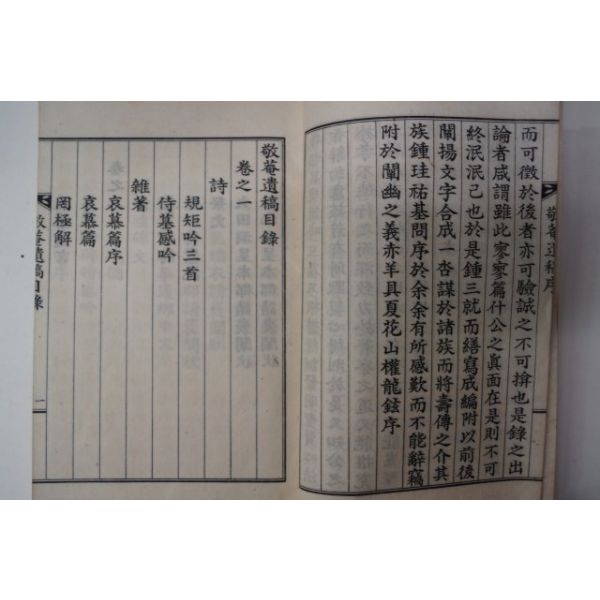 而可徵於後者亦可驗誠之不可揜也是錄之出
論者咸謂雖此寥寥篇什公之眞面在是則不可
終泯泯已也於是鍾三就而繕寫成編附以前後
闡揚文字合成一呇謀於諸族而將壽傳之介其
族鍾珪祐基問序於余余有所感歎而不能辭竊
附於闡幽之義赤羊具夏花山權龍鉉序
敬菴遺稿序
敬菴遺稿目錄
卷之一
詩
規矩吟三首
侍墓感吟
雜著
哀慕篇序
哀慕篇
罔極解
敬菴遺稿目錄
一